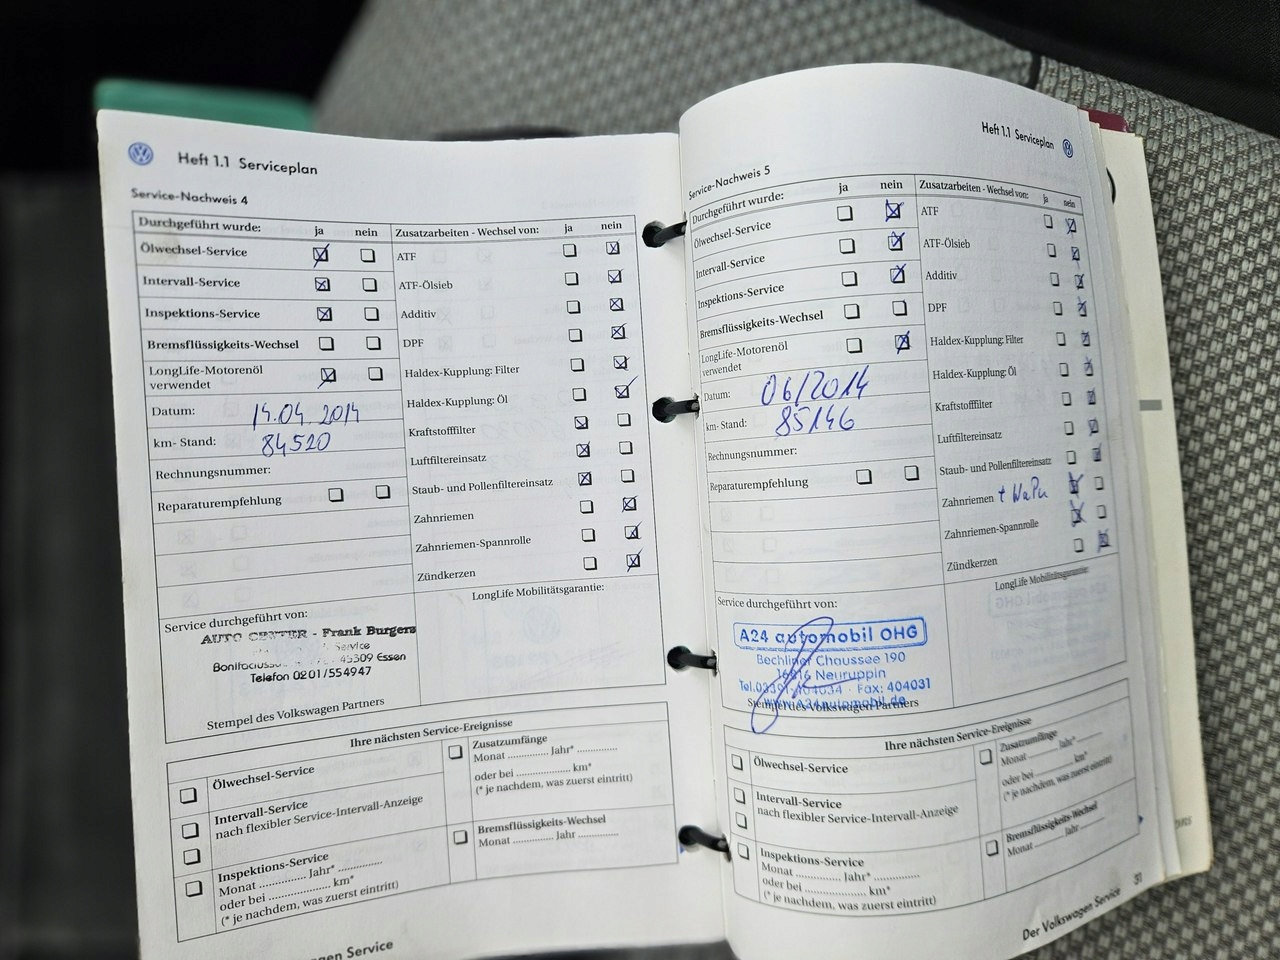 Heft 1.1 Serviceplan
Service-Nachweis 4
Durchgeführt wurde: ja nein
Ölwechsel-Service
Intervall-Service
Inspektions-Service
Bremsflüssigkeits-Wechsel
LongLife-Motorenöl
verwendet
Datum: 14.04.2014
km- Stand: 84520
Rechnungsnummer:
Reparaturempfehlung
Zusatzarbeiten - Wechsel von: ja nein
ATF
ATF-Ölsieb
Additiv
DPF
Haldex-Kupplung: Filter
Haldex-Kupplung: Öl
Kraftstofffilter
Luftfiltereinsatz
Staub- und Pollenfiltereinsatz
Zahnriemen
Zahnriemen-Spannrolle
Zündkerzen
Service durchgeführt von:
AUTO CENTER - Frank Burgers
Service
45309 Essen
Telefon 0201/554947
Stempel des Volkswagen Partners
LongLife Mobilitätsgarantie:
Ihre nächsten Service-Ereignisse
Ölwechsel-Service
Intervall-Service
nach flexibler Service-Intervall-Anzeige
Inspektions-Service
Monat .............. Jahr* ..............
oder bei .................... km*
(* je nachdem, was zuerst eintritt)
Zusatzumfänge
Monat ............. Jahr* .............
oder bei .................. km*
(* je nachdem, was zuerst eintritt)
Bremsflüssigkeits-Wechsel
Monat ............. Jahr .............
Service
Heft 1.1 Serviceplan
Service-Nachweis 5
Durchgeführt wurde: ja nein
Ölwechsel-Service
Intervall-Service
Inspektions-Service
Bremsflüssigkeits-Wechsel
LongLife-Motorenöl
verwendet
Datum: 06/2014
km- Stand: 85146
Rechnungsnummer:
Reparaturempfehlung
Zusatzarbeiten - Wechsel von: ja nein
ATF
ATF-Ölsieb
Additiv
DPF
Haldex-Kupplung: Filter
Haldex-Kupplung: Öl
Kraftstofffilter
Luftfiltereinsatz
Staub- und Pollenfiltereinsatz
Zahnriemen + WaPu
Zahnriemen-Spannrolle
Zündkerzen
Service durchgeführt von:
A24 automobil OHG
Bechliner Chaussee 190
16816 Neuruppin
Tel.03391-404034 · Fax: 404031
www.A24automobil.de
Stempel des Volkswagen Partners
LongLife Mobilitätsgarantie:
Ihre nächsten Service-Ereignisse
Ölwechsel-Service
Intervall-Service
nach flexibler Service-Intervall-Anzeige
Inspektions-Service
Monat .............. Jahr* ..............
oder bei .................... km*
(* je nachdem, was zuerst eintritt)
Zusatzumfänge
Monat ............. Jahr* .............
oder bei .................. km*
(* je nachdem, was zuerst eintritt)
Bremsflüssigkeits-Wechsel
Monat ............. Jahr .............
Der Volkswagen Service 31